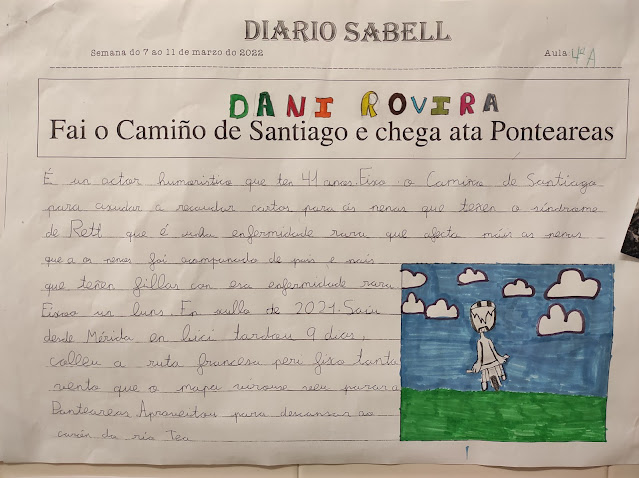 DIARIO SABELL
Semana do 7 ao 11 de marzo do 2022 Aula 4ºA
DANI ROVIRA
Fai o Camiño de Santiago e chega ata Ponteareas
É un actor humoristico que ten 41 anos. Fixo o Camiño de Santiago
para axudar a recaudar cartos para as nenas que teñen o síndrome
de Rett que é unha enfermidade rara que afecta máis as nenas
que a os nenos foi acompañado de pais e nais
que teñen fillas con esa enfermidade rara
un luns. En xullo de 2021. Saiu
desde Mérida en bici tardou 9 dias,
colleu a ruta francesa peri fixo tanta
vento que o mapa virouse veu para a
Ponteareas Aproveitou para descansar ao
da ria Tea